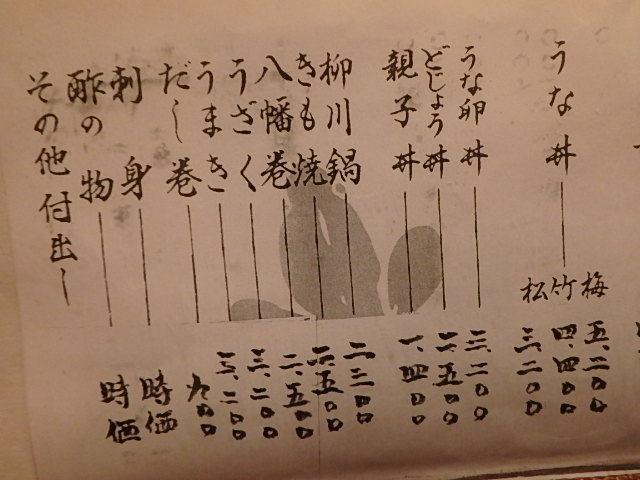 うな丼
梅 五、二〇〇
竹 四、四〇〇
松 三、二〇〇
うな卵丼 三、二〇〇
どじょう丼 二、五〇〇
親子丼 一、四〇〇
柳川鍋 二、三〇〇
きも焼
八幡巻 二、五〇〇
うざく 三、二〇〇
うまき 三、二〇〇
だし巻 九〇〇
刺身 時価
酢の物 時価
その他付出し